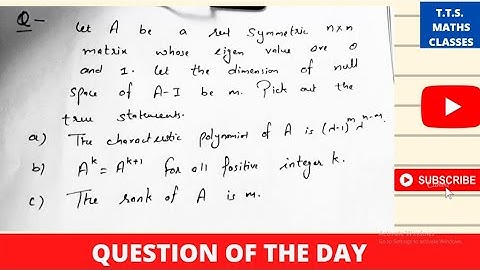 Q - Let A be a real symmetric n×n
matrix whose eigen value are 0
and 1. Let the dimension of null
space of A-I be m. Pick out the
true statements.
a) The characteristic polynomial of A is (λ-1)^m λ^n-m.
b) A^k = A^k+1 for all positive integer k.
c) The rank of A is m.
T.T.S.
MATHS
CLASSES
SUBSCRIBE
Activate Windows
Go to Settings to activate Windows.
QUESTION OF THE DAY